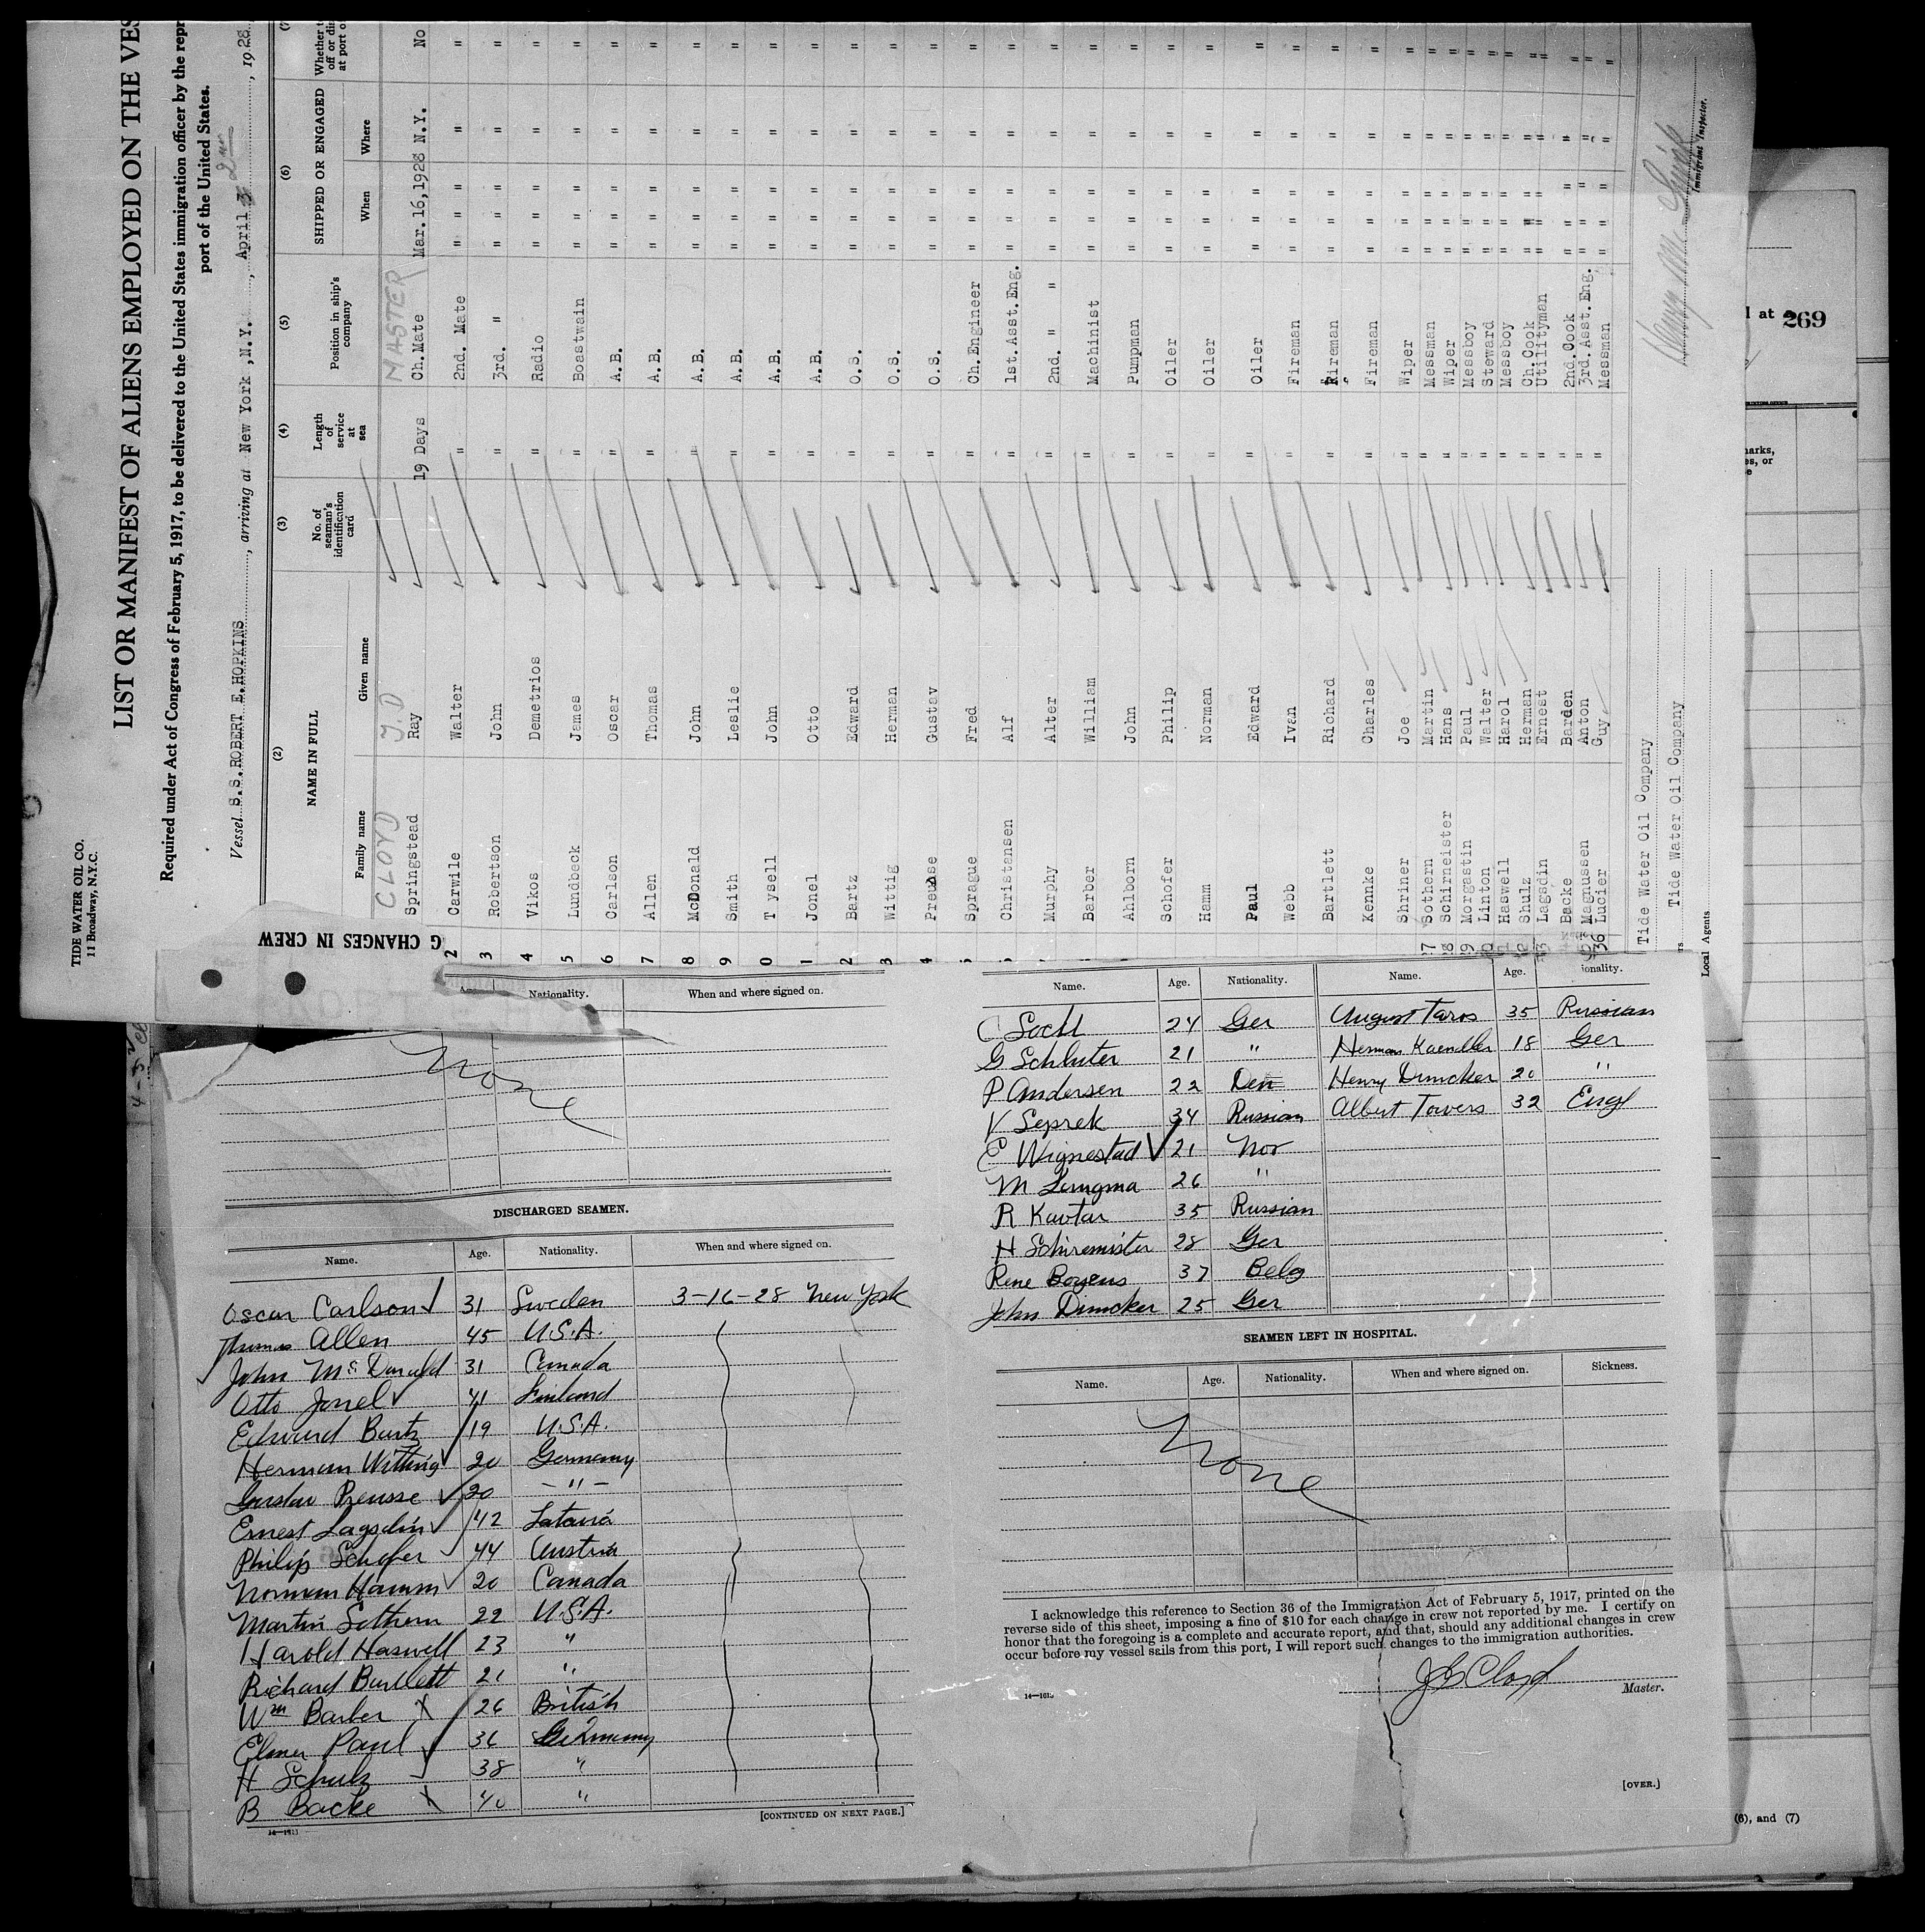 TIDE WATER OIL CO.
11 Broadway, N.Y.C.
LIST OR MANIFEST OF ALIENS EMPLOYED ON THE VES
Required under Act of Congress of February 5, 1917, to be delivered to the United States immigration officer by the repr
port of the United States.
Vessel S.S. ROBERT E. HOPKINS, arriving at New York, N.Y., April 2nd, 1928
(2) (3) (4) (5) (6)
NAME IN FULL No. of seaman's identification card Length of service at sea Position in ship's company SHIPPED OR ENGAGED Whether off or dis at port o
Family name Given name When Where
CLOYD J.D MASTER
Springstead Ray 19 Days Ch. Mate Mar. 16, 1928 N.Y. No
2 Carwile Walter " 2nd. Mate " " " " "
3 Robertson John " 3rd. " " " " " "
4 Vikos Demetrios " Radio " " " " "
5 Lundbeck James " Boastwain " " " " "
6 Carlson Oscar " A.B. " " " " "
7 Allen Thomas " A.B. " " " " "
8 McDonald John " A.B. " " " " "
9 Smith Leslie " A.B. " " " " "
0 Tysell John " A.B. " " " " "
1 Jonel Otto " A.B. " " " " "
2 Bartz Edward " O.S. " " " " "
3 Wittig Herman " O.S. " " " " "
4 Preusse Gustav " O.S. " " " " "
5 Sprague Fred " Ch. Engineer " " " " "
Christansen Alf " 1st. Asst. Eng. " " " " "
Murphy Alter " 2nd. " " " " " " "
Barber William " Machinist " " " " "
Ahlborn John " Pumpman " " " " "
Schofer Philip " Oiler " " " " "
Hamm Norman " Oiler " " " " "
Paul Edward " Oiler " " " " "
Webb Ivan " Fireman " " " " "
Bartlett Richard " Fireman " " " " "
Kennke Charles " Fireman " " " " "
Shriner Joe " Wiper " " " " "
27 Sothorn Martin " Messman " " " " "
28 Schirneister Hans " Wiper " " " " "
29 Morgastin Paul " Messboy " " " " "
Linton Walter " Steward " " " " "
Haswell Harol " Messboy " " " " "
Shulz Herman " Ch. Cook " " " " "
Lagsdin Ernest " Utilityman " " " " "
Backe Barden " 2nd. Cook " " " " "
Magnussen Anton " 3rd. Asst. Eng. " " " " "
36 Lucier Guy " Messman " " " " "
Tide Water Oil Company
Tide Water Oil Company
Local Agents
Immigrant Inspector.
G CHANGES IN CREW
Age. Nationality. When and where signed on.
None
DISCHARGED SEAMEN.
Name. Age. Nationality. When and where signed on.
Oscar Carlson 31 Sweden 3-16-28 New York
Thomas Allen 45 U.S.A.
John McDonald 31 Canada
Otto Jonel 41 Finland
Edward Bartz 19 U.S.A.
Herman Witting 20 Germany
Gustav Preusse 20 - " -
Ernest Lagsdin 42 Latavia
Philip Schofer 44 Austria
Norman Hamm 20 Canada
Martin Sothern 22 U.S.A.
Harold Haswell 23 "
Richard Bartlett 21 "
Wm Barber X 26 British
Elmer Paul 36 Germany
H Schulz 38 "
B Backe X 40 "
[CONTINUED ON NEXT PAGE.]
14—1611
Name. Age. Nationality. Name. Age. ionality.
24 Ger August Taros 35 Russian
G Schluter 21 " Herman Kaendler 18 Ger
P Andersen 22 Den Henry Dimcker 20 "
V Seprek 34 Russian Albert Towers 32 Engl
E Wignestad 21 Nor
M Lungma 26 "
R Kavtar 35 Russian
H Schiremister 28 Ger
Rene Boyens 37 Belg
John Dimcker 25 Ger
SEAMEN LEFT IN HOSPITAL.
Name. Age. Nationality. When and where signed on. Sickness.
None
I acknowledge this reference to Section 36 of the Immigration Act of February 5, 1917, printed on the
reverse side of this sheet, imposing a fine of $10 for each change in crew not reported by me. I certify on
honor that the foregoing is a complete and accurate report, and that, should any additional changes in crew
occur before my vessel sails from this port, I will report such changes to the immigration authorities.
J D Cloyd
Master.
[OVER.]
d at 269
narks,
es, or
(6), and (7)